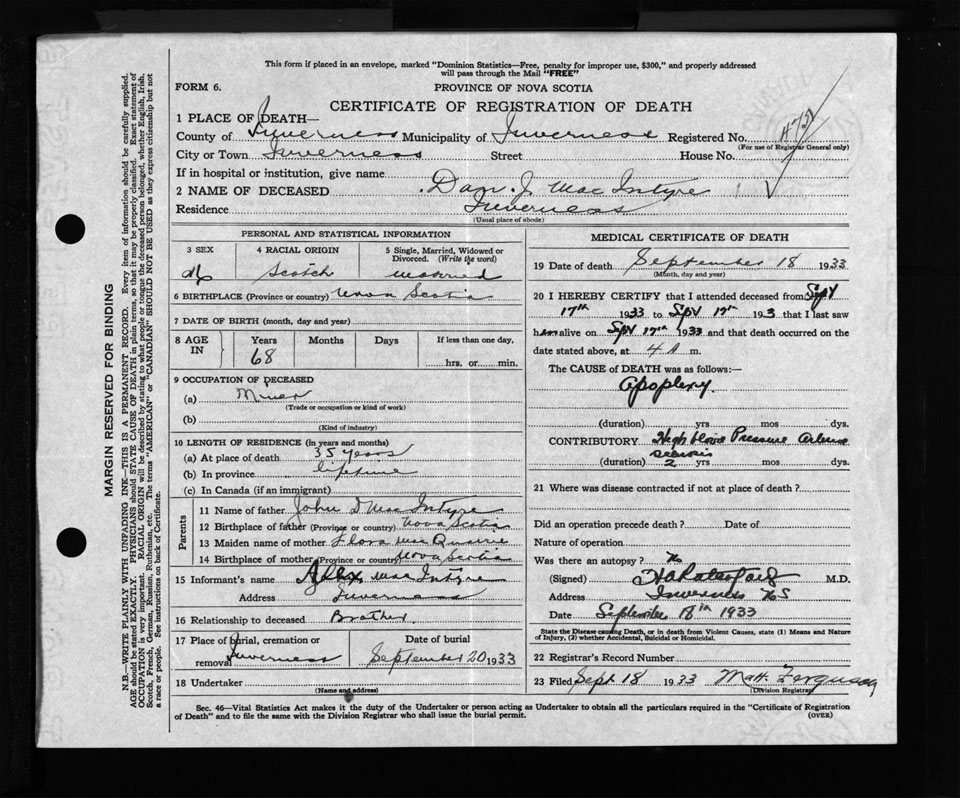 This form if placed in an envelope, marked "Dominion Statistics—Free, penalty for improper use, $300," and properly addressed
will pass through the Mail "FREE"
FORM 6.
PROVINCE OF NOVA SCOTIA
CERTIFICATE OF REGISTRATION OF DEATH
1 PLACE OF DEATH—
County of Inverness Municipality of Inverness Registered No.
(For use of Registrar General only)
City or Town Inverness Street House No.
If in hospital or institution, give name
2 NAME OF DECEASED Dan. J. MacIntyre
Residence Inverness
(Usual place of abode)
PERSONAL AND STATISTICAL INFORMATION
3 SEX 4 RACIAL ORIGIN 5 Single, Married, Widowed or Divorced. (Write the word)
M Scotch married
6 BIRTHPLACE (Province or country) Nova Scotia
7 DATE OF BIRTH (month, day and year)
8 AGE IN Years Months Days If less than one day,
68 hrs. or min.
9 OCCUPATION OF DECEASED
(a) Miner
(Trade or occupation or kind of work)
(b)
(Kind of industry)
10 LENGTH OF RESIDENCE (in years and months)
(a) At place of death 35 years
(b) In province lifetime
(c) In Canada (if an immigrant)
Parents
11 Name of father John D MacIntyre
12 Birthplace of father (Province or country) Nova Scotia
13 Maiden name of mother Flora MacQuarrie
14 Birthplace of mother (Province or country) Nova Scotia
15 Informant's name Alex MacIntyre
Address Inverness
16 Relationship to deceased Brother
17 Place of burial, cremation or removal Inverness
Date of burial
September 20 1933
18 Undertaker
(Name and address)
MEDICAL CERTIFICATE OF DEATH
19 Date of death September 18 1933
(Month, day and year)
20 I HEREBY CERTIFY that I attended deceased from Sept
17th 1933 to Sept 17th 193 that I last saw
him alive on Sept 17th 1933 and that death occurred on
date stated above, at 4 A m.
The CAUSE of DEATH was as follows:—
Apoplexy
(duration) yrs mos dys.
CONTRIBUTORY High blood Pressure
(duration) 2 yrs mos dys.
21 Where was disease contracted if not at place of death?
Did an operation precede death? Date of
Nature of operation
Was there an autopsy? No
(Signed) M.D.
Address Inverness NS
Date September 18th 1933
State the Disease causing Death, or in death from Violent Causes, state (1) Means and Nature
of Injury, (2) whether Accidental, Suicidal or Homicidal.
22 Registrar's Record Number
23 Filed Sept 18 1933 Matt. Ferguson
(Division Registrar)
Sec. 46—Vital Statistics Act makes it the duty of the Undertaker or person acting as Undertaker to obtain all the particulars required in the "Certificate of Registration
of Death" and to file the same with the Division Registrar who shall issue the burial permit.
(OVER)
MARGIN RESERVED FOR BINDING
N.B.—WRITE PLAINLY WITH UNFADING INK—THIS IS A PERMANENT RECORD. Every item of information should be carefully supplied.
AGE should be stated EXACTLY. PHYSICIANS should STATE CAUSE OF DEATH in plain terms, so that it may be properly classified. Exact statement of
OCCUPATION is very important. RACIAL ORIGIN will be described by stating to what people or tongue the deceased person belonged, whether English, Irish,
Scotch, French, German, Russian, Ruthenian, etc. The terms "AMERICAN" or "CANADIAN" SHOULD NOT BE USED as they express citizenship but not
a race or people. See instructions on back of Certificate.